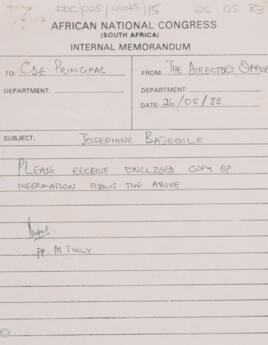 DDC/005/0045/15 26 05 83
AFRICAN NATIONAL CONGRESS
(SOUTH AFRICA)
INTERNAL MEMORANDUM
TO CDE PRINCIPAL FROM THE DIRECTOR'S OFFICE
DEPARTMENT: DEPARTMENT:
DATE: 26/05/83
SUBJECT: JOSEPHINE
PLEASE RECEIVE ENCLOSED COPY OF
INFORMATION ABOUT THE ABOVE.
pp. M TIKLY